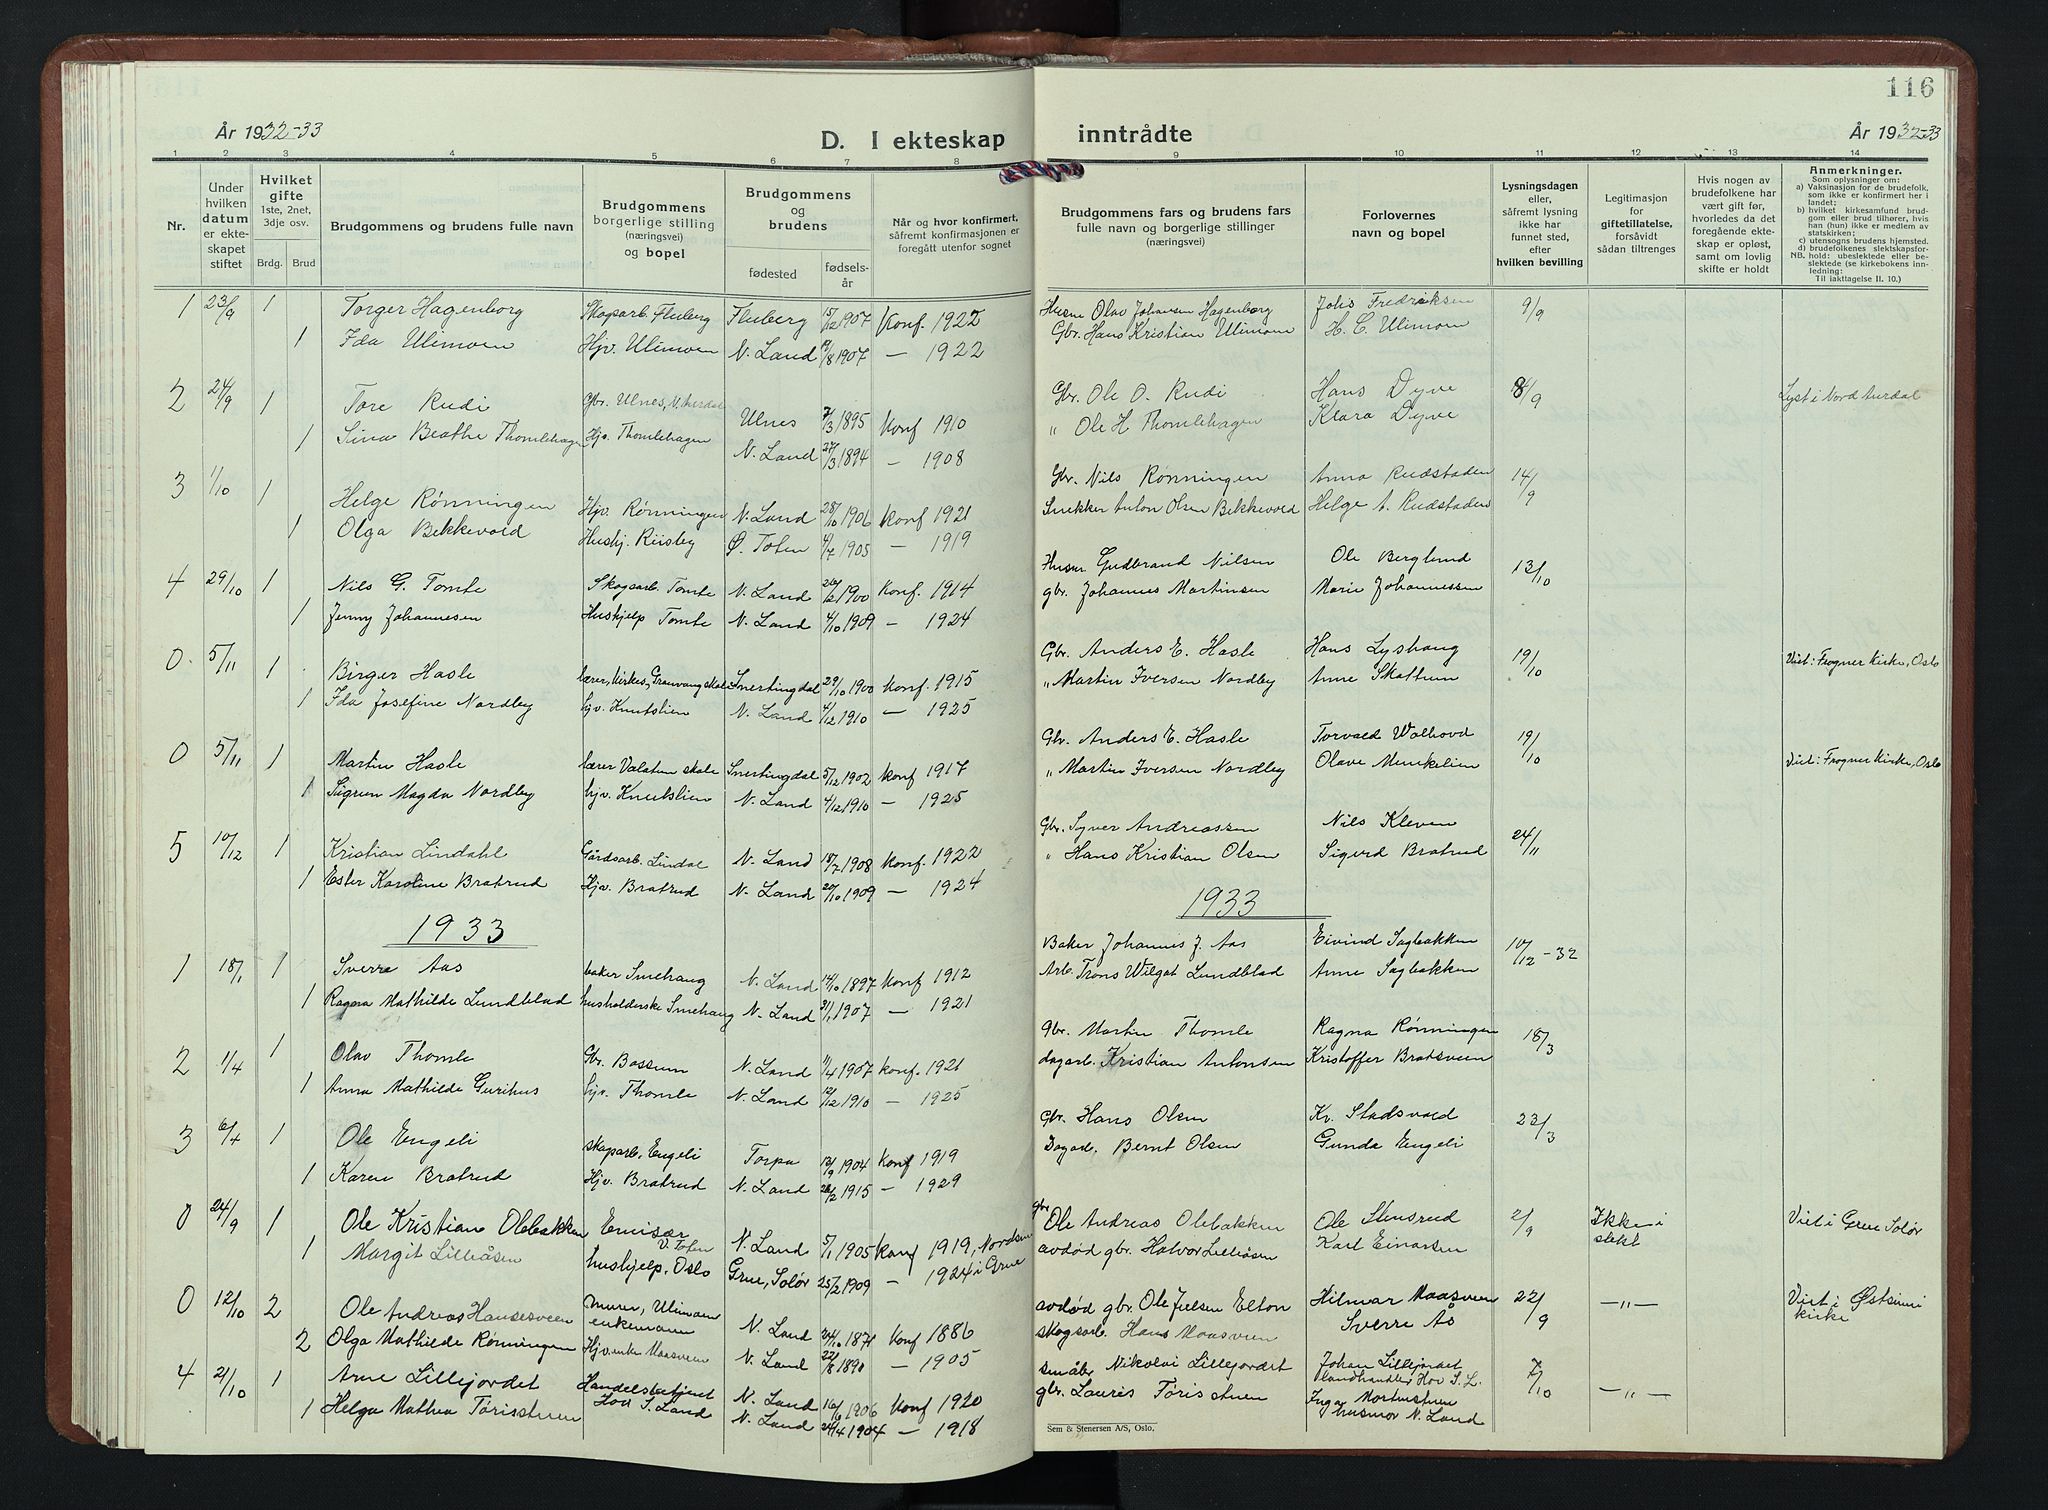 116
År 1932-33
D. I ekteskap inntrådte
År 1932-33
1 2 3 4 5 6 7 8 9 10 11 12 13 14
Nr.
Under hvilken datum er ekteskapet stiftet
Hvilket gifte 1ste, 2net, 3dje osv.
Brdg. Brud
Brudgommens og brudens fulle navn
Brudgommens borgerlige stilling (næringsvei) og bopel
Brudgommens og brudens
fødested
fødselsår
Når og hvor konfirmert, såfremt konfirmasjonen er foregått utenfor sognet
Brudgommens fars og brudens fars fulle navn og borgerlige stillinger (næringsvei)
Forlovernes navn og bopel
Lysningsdagen eller, såfremt lysning ikke har funnet sted, efter hvilken bevilling
Legitimasjon for giftetillatelse, forsåvidt sådan tiltrenges
Hvis nogen av brudefolkene har vært gift før, hvorledes da det foregående ekteskap er opløst, samt om lovlig skifte er holdt
Anmerkninger.
Som oplysninger om:
a) Vaksinasjon for de brudefolk, som ikke er konfirmert her i landet;
b) hvilket kirkesamfund brudgom eller brud tilhører, hvis han (hun) ikke er medlem av statskirken;
c) utensogns brudens hjemsted.
d) brudefolkenes slektskapsforhold: ubeslektede eller beslektede (se kirkebokens innledning:
NB. Til iakttagelse II. 10.)
1 23/9 1 Torger Hagenborg Skogarb. Fluberg Fluberg 15/12 1907 Konf. 1922 Husm Olav Johansen Hagenborg Johs Fredriksen 9/9
1 Ida Ulimoen Hjv. Ulimoen N. Land 19/8 1907 — 1922 Gbr. Hans Kristian Ulimoen H. C. Ulimoen
2 24/9 1 Tore Rudi Gbr. Ulnes, N. Aurdal Ulnes 7/3 1895 Konf 1910 Gbr. Ole O. Rudi Hans Dyve 8/9 Lyst i Nord Aurdal
1 Sina Beathe Thomlehagen Hjv. Thomlehagen N. Land 27/3 1894 — 1908 " Ole H. Thomlehagen Klara Dyve
3 1/10 1 Helge Rønningen Hjv. Rønningen N. Land 28/10 1906 Konf 1921 Gbr. Nils Rønningen Anna Rudstaden 14/9
1 Olga Bekkevold Hushj. Riisby Ø. Toten 1905 — 1919 Snekker Anton Olsen Bekkevold Helge A. Rudstaden
4 29/10 1 Nils G. Tomte Skogsarb. Tomte N. Land 26/2 1900 Konf. 1914 Husm Gudbrand Nilsen Ole Berglund 13/10
1 Jenny Johannesen Hushjelp Tomte N. Land 4/10 1909 — 1924 gbr. Johannes Martinsen Marie Johannessen
0 5/11 1 Birger Hasle lærer, Kirkes, Grauvang skole Snertingdal 29/10 1900 Konf. 1915 Gbr. Anders E. Hasle Hans Lyshaug 19/10 Viet: Frogner Kirke, Oslo
1 Ida Josefine Nordby hjv. Knutslien N. Land 4/12 1910 — 1925 " Martin Iversen Nordby Anne Skattum
0 5/11 1 Martin Hasle lærer Valatun skole Snertingdal 5/12 1902 konf 1917 Gbr. Anders E. Hasle Torvald Wolhovd 19/10 Viet: Frogner Kirke, Oslo
1 Sigrun Magda Nordby hjv. Knutslien N. Land 4/12 1910 — 1925 " Martin Iversen Nordby Olave Menkelien
5 10/12 1 Kristian Lindahl Gårdsarb. Lindal N. Land 18/7 1908 konf. 1922 Gbr. Syver Andreassen Nils Kleven 24/11
1 Ester Karoline Bratrud Hjv. Bratrud N. Land 20/10 1909 — 1924 " Hans Kristian Olsen Sigurd Bratrud
1933 1933
1 18/1 1 Sverre Aas baker Smehaug N. Land 14/10 1897 Konf 1912 Baker Johannes J. Aas Eivind Sagbakken 10/12 - 32
1 Ragna Mathilde Lundblad husholderske Smehaug N. Land 31/1 1907 — 1921 Arb. Frons Wilgot Lundblad Anne Sagbakken
2 1/4 1 Olav Thomle Gbr. Bossum N. Land 11/4 1907 konf. 1921 Gbr. Martin Thomle Ragna Rønningen 18/3
1 Anna Mathilde Gurihus hjv. Thomle N. Land 12/12 1910 — 1925 dagarb. Kristian Antonsen Kristoffer Bratsveen
3 6/4 1 Ole Engeli skogarb. Engeli Torpa 13/9 1904 Konf 1919 Gbr. Hans Olsen Kr. Stadsvold 23/3
1 Karen Bratrud Hjv. Bratrud N. Land 1915 — 1929 Dagarb. Bernt Olsen Gunda Engeli
0 24/9 1 Ole Kristian Olebakken Emisær V. Toten N. Land 5/1 1905 Konf 1919, Nordsin gbr Ole Andreas Olebakken Ole Stensrud 2/9 Ikke i slekt Viet i Grue Solør
1 Margit Lilleåsen hushjelp, Oslo Grue, Solør 25/2 1909 — 1924 i Grue avdød gbr. Halvor Lilleåsen Karl Einarsen
0 12/10 2 Ole Andreas Hansesveen murer, Ulimoen enkemann N. Land 24/10 1871 Konf 1886 avdød gbr. Ole Jielsen Elton Hilmar Maasveen 22/9 — " — Viet i Østsinni kirke
2 Olga Mathilde Rønningen Hjv. enke Maasveen N. Land 22/8 1890 — 1905 skogsarb. Hans Maasveen Sverre Ås
4 21/10 1 Arne Lillejordet Handelsbetjent Hov S. Land N. Land 16/6 1906 Konf 1920 småbr Nikolai Lillejordet Johan Lillejordet landhandler Hov S. L. 7/10 — " —
1 Helga Mathea Tørisstuen N. Land 24/4 1904 — 1918 gbr. Laurits Tørisstuen Inga Mortenstuen husmor N. Land
Sem & Stenersen A/S, Oslo.